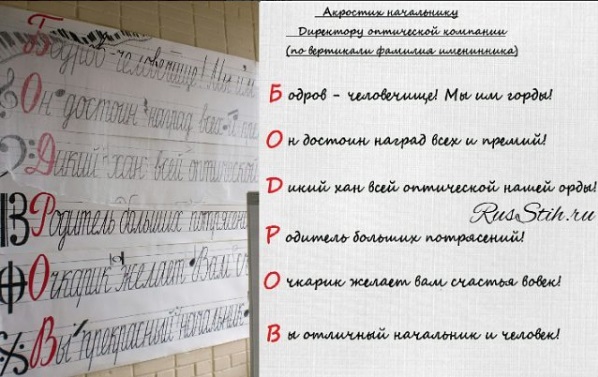 Бодров человечище! Мы им
Он достоин наград всех и пре
Дикий хан всей оптической
Родитель больших потрясени
Очкарик желает Вам сч
Вы прекрасный начальник
Акростих начальнику
Директору оптической компании
(по вертикали фамилия именинника)
Бодров - человечище! Мы им горды!
Он достоин наград всех и премий!
Дикий хан всей оптической нашей орды!
RusStih.ru
Родитель больших потрясений!
Очкарик желает вам счастья вовек!
Вы отличный начальник и человек!